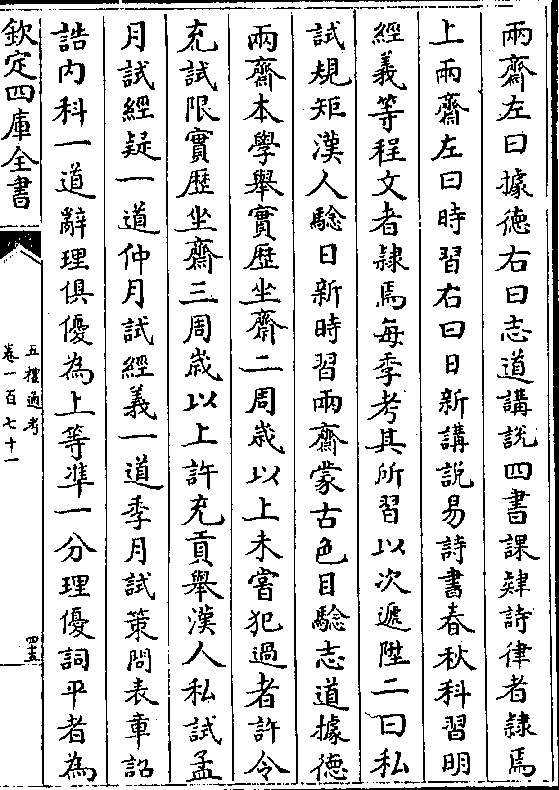 兩齋左曰據徳右曰志道講説四書課肄詩律者隸焉
上兩齋左曰時習右曰日新講説易詩書春秋科習明
經義等程文者隸焉每季考其所習以次遞陞二曰私
試規矩漢人驗日新時習兩齋蒙古色目驗志道據徳
兩齋本學舉實歴坐齋二周歳以上未嘗犯過者許令
充試限實歴坐齋三周歳以上許充貢舉漢人私試孟
月試經疑一道仲月試經義一道季月試策問表章詔
誥内科一道辭理俱優為上等準一分理優詞平者為
欽定四庫全書
五禮通考
卷一百七十一
四五